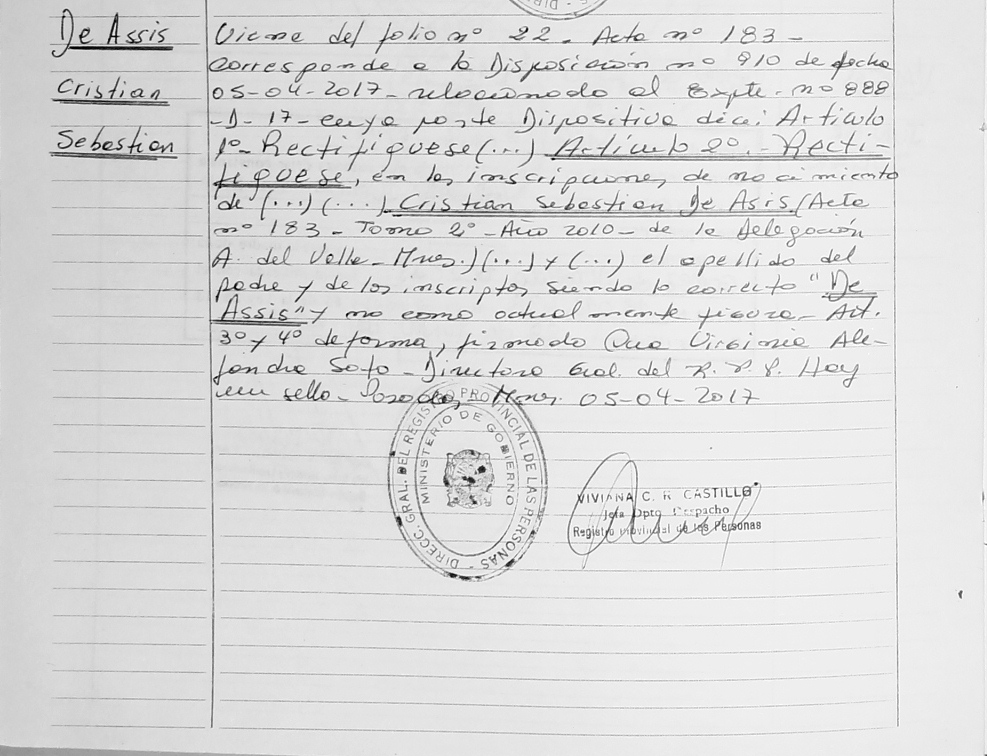 De Assis
Cristian
Sebastian
Viene del folio nº 22. Acta nº 183 -
corresponde a la Disposición nº 910 de fecha
05-04-2017- relacionado al Expte. nº 888
-D-17- cuya parte Dispositiva dice: Artículo
1º- Rectifíquese (...) Artículo 2º.- Recti-
fíquese, en las inscripciones de nacimiento
de (...) (...) Cristian Sebastian De Asis (Acta
nº 183 - Tomo 2º - Año 2010 - de la Delegación
A. del Valle - Mnes.) (...) y (...) el apellido del
padre y de los inscriptos siendo lo correcto "De
Assis" y no como actualmente figura. Art.
3º y 4º de forma, firmado Dra Virginia Ale-
jandra Soto - Directora Gral. del R. P. P. Hay
un sello - Posadas, Mnes. 05-04-2017
DIRECC. GRAL. DEL REGISTRO PROVINCIAL DE LAS PERSONAS -
MINISTERIO DE GOBIERNO
VIVIANA C. R CASTILLO
Jefa Dpto. Despacho
Registro Provincial de las Personas